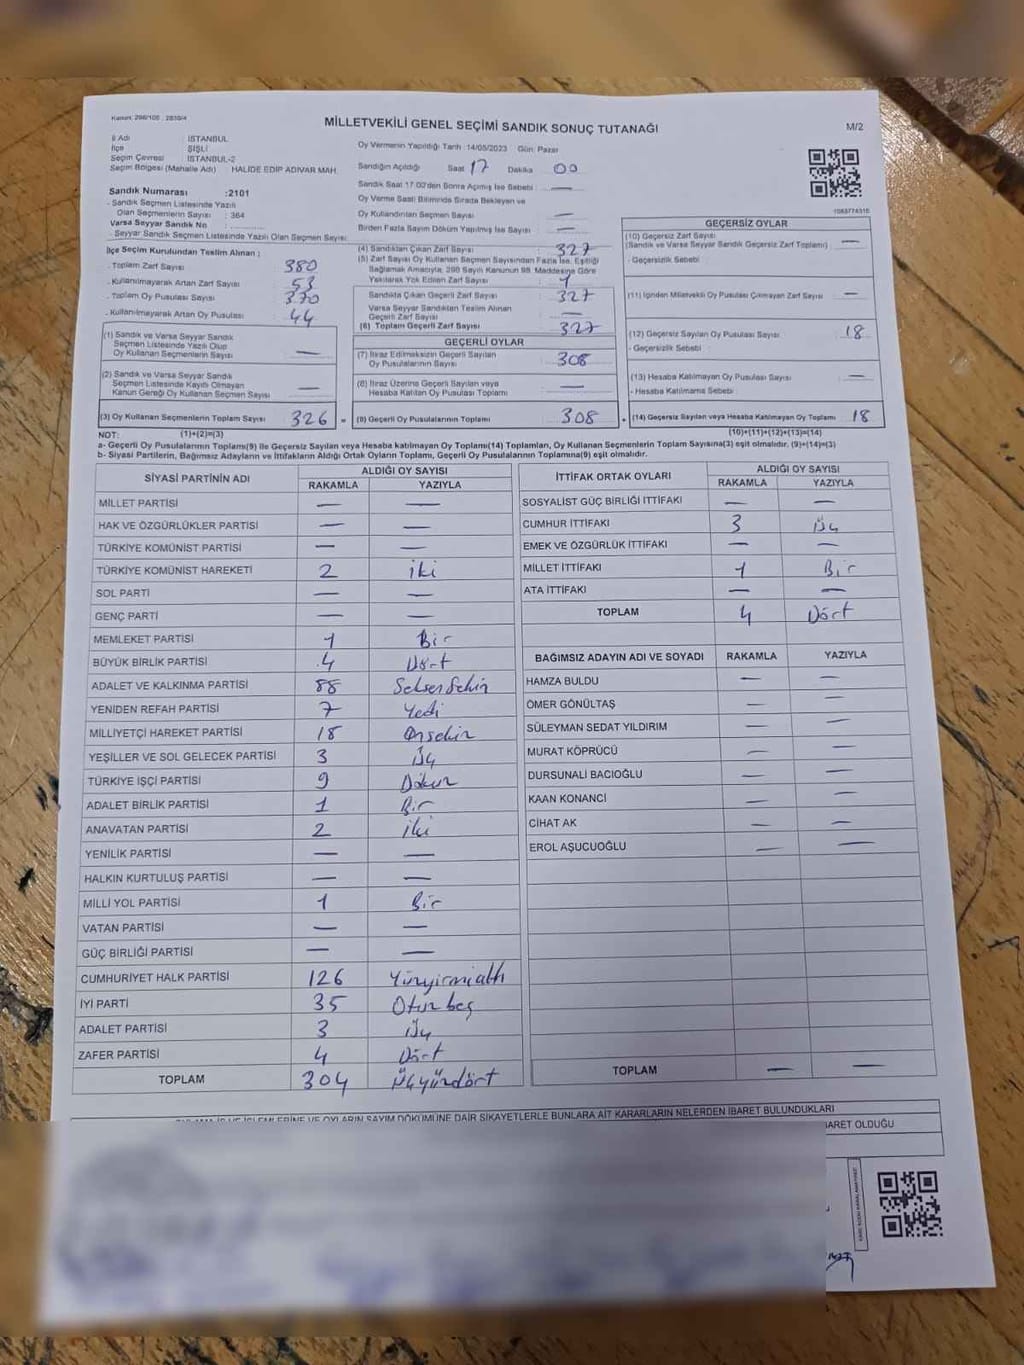 Kanun: 298/105 : 2839/4
MİLLETVEKİLİ GENEL SEÇİMİ SANDIK SONUÇ TUTANAĞI
M/2
İl Adı : İSTANBUL
İlçe : ŞİŞLİ
Seçim Çevresi : İSTANBUL-2
Seçim Bölgesi (Mahalle Adı) : HALİDE EDİP ADIVAR MAH.
Oy Vermenin Yapıldığı Tarih :14/05/2023 Gün: Pazar
Sandığın Açıldığı Saat 17 Dakika 00
Sandık Saat 17:00'den Sonra Açılmış İse Sebebi : —
Oy Verme Saati Bitiminde Sırada Bekleyen ve
Oy Kullandırılan Seçmen Sayısı : —
Birden Fazla Sayım Döküm Yapılmış İse Sayısı : —
Sandık Numarası :2101
- Sandık Seçmen Listesinde Yazılı
Olan Seçmenlerin Sayısı : 364
Varsa Seyyar Sandık No :
- Seyyar Sandık Seçmen Listesinde Yazılı Olan Seçmen Sayısı:
İlçe Seçim Kurulundan Teslim Alınan :
- Toplam Zarf Sayısı 380
- Kullanılmayarak Artan Zarf Sayısı 53
- Toplam Oy Pusulası Sayısı 370
- Kullanılmayarak Artan Oy Pusulası 44
(1) Sandık ve Varsa Seyyar Sandık
Seçmen Listesinde Yazılı Olup
Oy Kullanan Seçmenlerin Sayısı —
(2) Sandık ve Varsa Seyyar Sandık
Seçmen Listesinde Kayıtlı Olmayan
Kanun Gereği Oy Kullanan Seçmen Sayısı —
(3) Oy Kullanan Seçmenlerin Toplam Sayısı 326 =
(4) Sandıktan Çıkan Zarf Sayısı 327
(5) Zarf Sayısı Oy Kullanan Seçmen Sayısından Fazla İse, Eşitliği
Bağlamak Amacıyla, 298 Sayılı Kanunun 98. Maddesine Göre
Yakılarak Yok Edilen Zarf Sayısı : 1
Sandıkta Çıkan Geçerli Zarf Sayısı 327
Varsa Seyyar Sandıktan Teslim Alınan
Geçerli Zarf Sayısı —
(6) Toplam Geçerli Zarf Sayısı 327
GEÇERLİ OYLAR
(7) İtiraz Edilmeksizin Geçerli Sayılan
Oy Pusulalarının Sayısı 308
(8) İtiraz Üzerine Geçerli Sayılan veya
Hesaba Katılan Oy Pusulası Toplamı —
(9) Geçerli Oy Pusulalarının Toplamı 308 +
1083774315
GEÇERSİZ OYLAR
(10) Geçersiz Zarf Sayısı
(Sandık ve Varsa Seyyar Sandık Geçersiz Zarf Toplamı) —
- Geçersizlik Sebebi :
(11) İçinden Milletvekili Oy Pusulası Çıkmayan Zarf Sayısı —
(12) Geçersiz Sayılan Oy Pusulası Sayısı 18
- Geçersizlik Sebebi :
(13) Hesaba Katılmayan Oy Pusulası Sayısı —
- Hesaba Katılmama Sebebi :
(14) Geçersiz Sayılan veya Hesaba Katılmayan Oy Toplamı 18
NOT: (1)+(2)=(3) (10)+(11)+(12)+(13)=(14)
a- Geçerli Oy Pusulalarının Toplamı(9) ile Geçersiz Sayılan veya Hesaba katılmayan Oy Toplamı(14) Toplamları, Oy Kullanan Seçmenlerin Toplam Sayısına(3) eşit olmalıdır. (9)+(14)=(3)
b- Siyasi Partilerin, Bağımsız Adayların ve İttifakların Aldığı Ortak Oyların Toplamı, Geçerli Oy Pusulalarının Toplamına(9) eşit olmalıdır.
SİYASİ PARTİNİN ADI ALDIĞI OY SAYISI
RAKAMLA YAZIYLA
MİLLET PARTİSİ — —
HAK VE ÖZGÜRLÜKLER PARTİSİ — —
TÜRKİYE KOMÜNİST PARTİSİ — —
TÜRKİYE KOMÜNİST HAREKETİ 2 iki
SOL PARTİ — —
GENÇ PARTİ — —
MEMLEKET PARTİSİ 1 Bir
BÜYÜK BİRLİK PARTİSİ 4 Dört
ADALET VE KALKINMA PARTİSİ 88 Seksen Sekiz
YENİDEN REFAH PARTİSİ 7 Yedi
MİLLİYETÇİ HAREKET PARTİSİ 18 Onsekiz
YEŞİLLER VE SOL GELECEK PARTİSİ 3 Üç
TÜRKİYE İŞÇİ PARTİSİ 9 Dokuz
ADALET BİRLİK PARTİSİ 1 Bir
ANAVATAN PARTİSİ 2 iki
YENİLİK PARTİSİ — —
HALKIN KURTULUŞ PARTİSİ — —
MİLLİ YOL PARTİSİ 1 Bir
VATAN PARTİSİ — —
GÜÇ BİRLİĞİ PARTİSİ — —
CUMHURİYET HALK PARTİSİ 126 Yüzyirmialtı
İYİ PARTİ 35 Otuz beş
ADALET PARTİSİ 3 Üç
ZAFER PARTİSİ 4 Dört
TOPLAM 304 Üçyüzdört
İTTİFAK ORTAK OYLARI ALDIĞI OY SAYISI
RAKAMLA YAZIYLA
SOSYALİST GÜÇ BİRLİĞİ İTTİFAKI — —
CUMHUR İTTİFAKI 3 Üç
EMEK VE ÖZGÜRLÜK İTTİFAKI — —
MİLLET İTTİFAKI 1 Bir
ATA İTTİFAKI — —
TOPLAM 4 Dört
BAĞIMSIZ ADAYIN ADI VE SOYADI RAKAMLA YAZIYLA
HAMZA BULDU — —
ÖMER GÖNÜLTAŞ — —
SÜLEYMAN SEDAT YILDIRIM — —
MURAT KÖPRÜCÜ — —
DURSUNALİ BACIOĞLU — —
KAAN KONANCİ — —
CİHAT AK — —
EROL AŞUCUOĞLU — —
TOPLAM — —
OYLARIN SAYIM DÖKÜMÜNE DAİR ŞİKAYETLERLE BUNLARA AİT KARARLARIN NELERDEN İBARET BULUNDUKLARI
BARET OLDUĞU